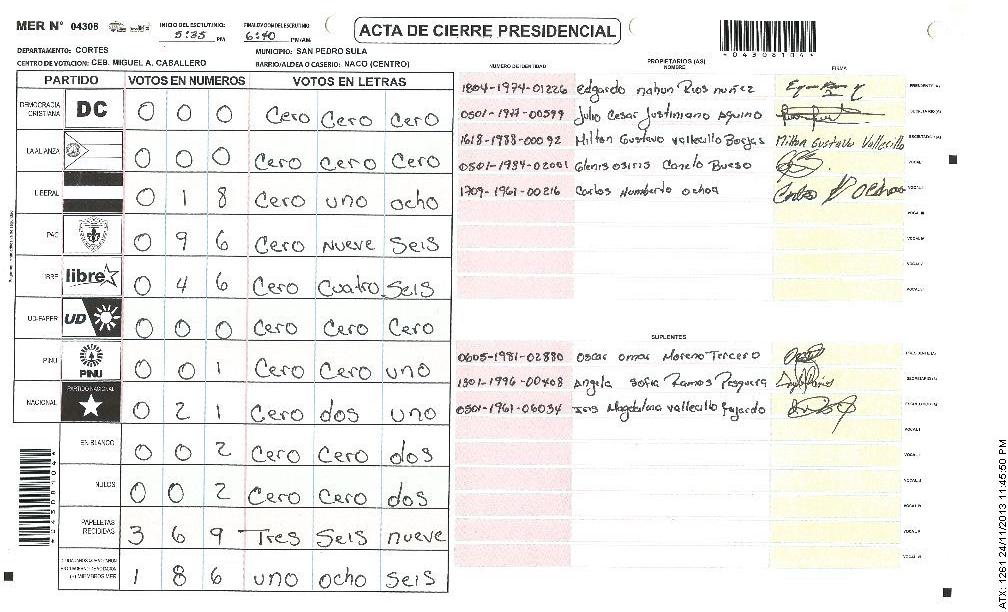 MER N° 04308
INICIO DEL ESCRUTINIO: 5:35 PM
FINALIZACION DEL ESCRUTINIO: 6:40 PM/AM
ACTA DE CIERRE PRESIDENCIAL
*04308104*
DEPARTAMENTO: CORTES
MUNICIPIO: SAN PEDRO SULA
CENTRO DE VOTACION: CEB. MIGUEL A. CABALLERO
BARRIO/ALDEA O CASERIO: NACO (CENTRO)
PARTIDO VOTOS EN NUMEROS VOTOS EN LETRAS
DEMOCRACIA CRISTIANA DC 0 0 0 Cero Cero Cero
LA ALIANZA 0 0 0 Cero Cero Cero
LIBERAL 0 1 8 Cero uno ocho
PAC 0 9 6 Cero Nueve Seis
LIBRE libre 0 4 6 Cero Cuatro Seis
UD-FAPER UD 0 0 0 Cero Cero Cero
PINU PINU 0 0 1 Cero Cero uno
NACIONAL PARTIDO NACIONAL 0 2 1 Cero dos uno
EN BLANCO 0 0 2 Cero Cero dos
NULOS 0 0 2 Cero Cero dos
PAPELETAS RECIBIDAS 3 6 9 Tres Seis nueve
(+) MIEMBROS MER 1 8 6 uno ocho Seis
PROPIETARIOS (AS)
NUMERO DE IDENTIDAD NOMBRE FIRMA
1804-1974-01226 Edgardo nahun Rios nuñez PRESIDENTE (A)
0501-1977-00599 Julio Cesar Justiniano Aguino SECRETARIO (A)
1618-1988-00092 Milton Gustavo Vallecillo Borjas Milton Gustavo Vallecillo ESCRUTADOR (A)
0501-1984-02001 Glenis osiris Canelo Bueso VOCAL I
1709-1961-00216 Carlos Humberto Ochoa VOCAL II
VOCAL III
VOCAL IV
VOCAL V
SUPLENTES
0605-1981-02880 Oscar omar Moreno Tercero PRESIDENTE (A)
1801-1996-00408 Angela Sofia Ramos Pesquera SECRETARIO (A)
0501-1961-06034 Iris Magdalena Vallecillo fajardo ESCRUTADOR (A)
VOCAL I
VOCAL II
VOCAL III
VOCAL IV
VOCAL V
ATX: 1261 24/11/2013 11:45:50 PM